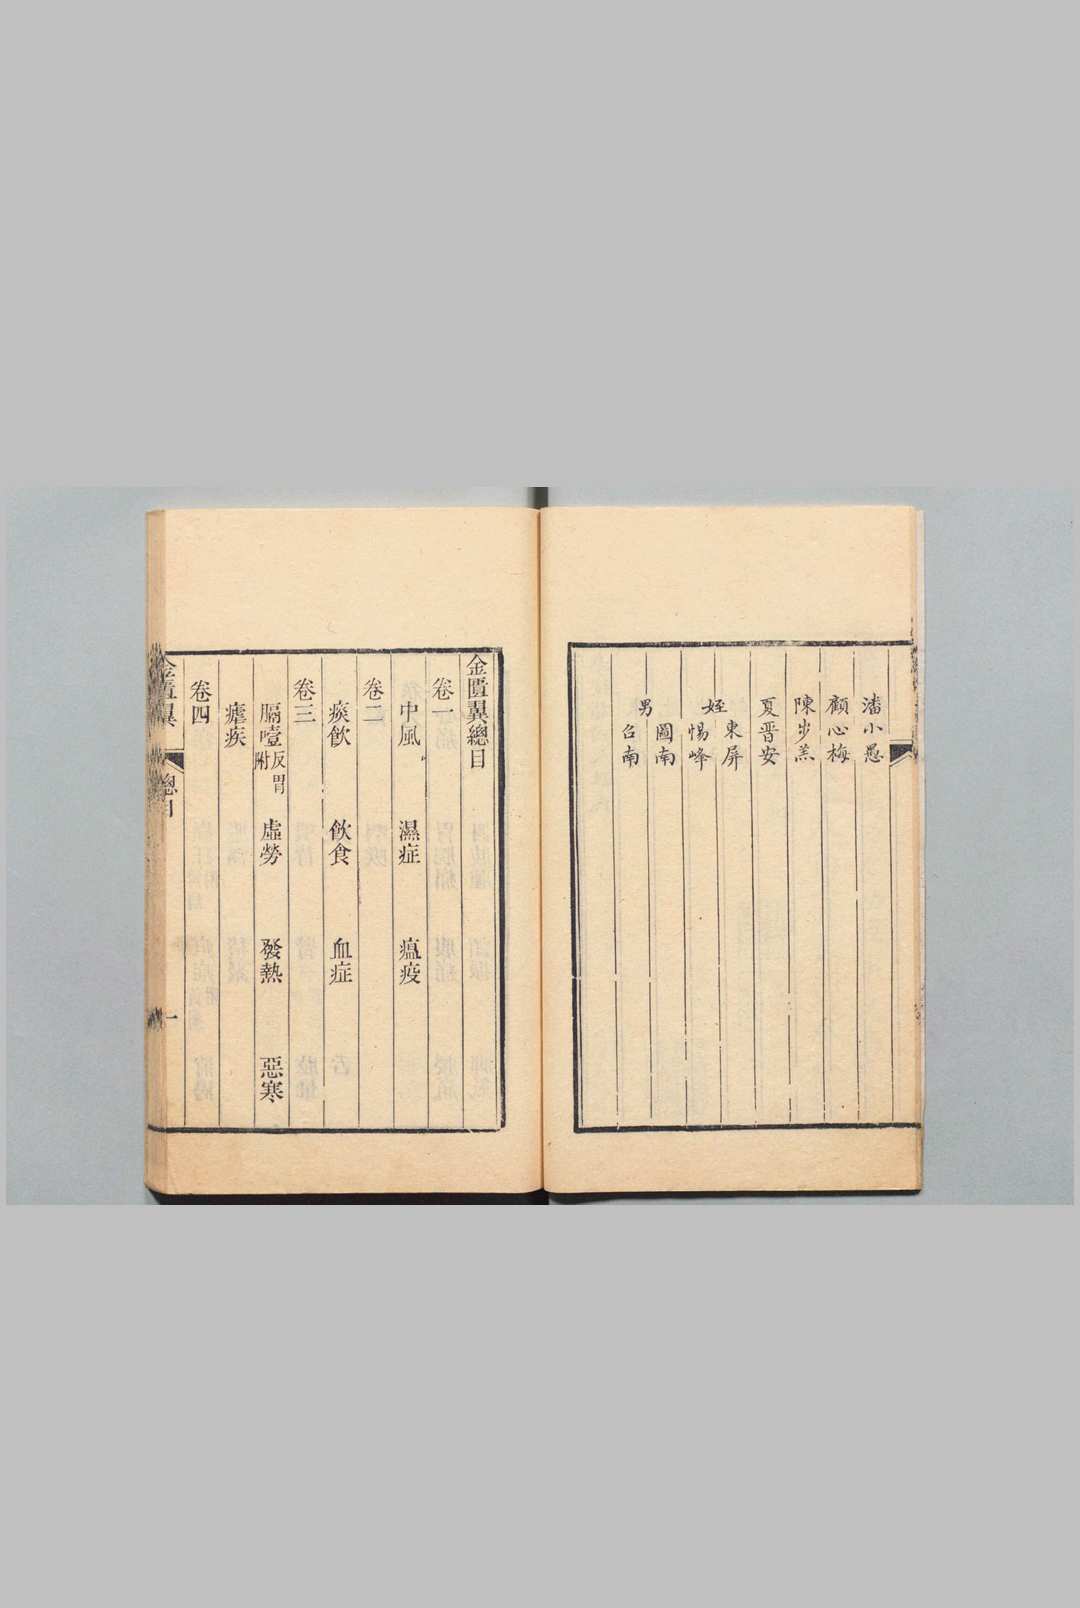 潘小愚
顧心梅
陳步羔
夏晋安
姪東屏
惕峰
男圖南
召南
金匱翼總目
卷一
中風 濕症 瘟疫
卷二
痰飲 飲食 血症
卷三
膈噎反胃附 虛勞 發熱 惡寒
瘧疾
卷四
金匱翼 總目 一